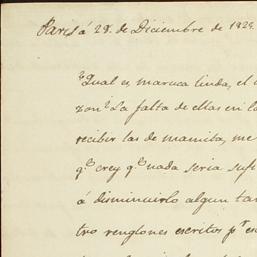 Paris á 28. de Diciembre de 1829.
Qual es, maruca linda, el
La falta de ellas en lo
recibir las de mamita, me
q.e crey q.e nada seria sufi
á disminuirlo algun tan
tro renglones escritos p.r es